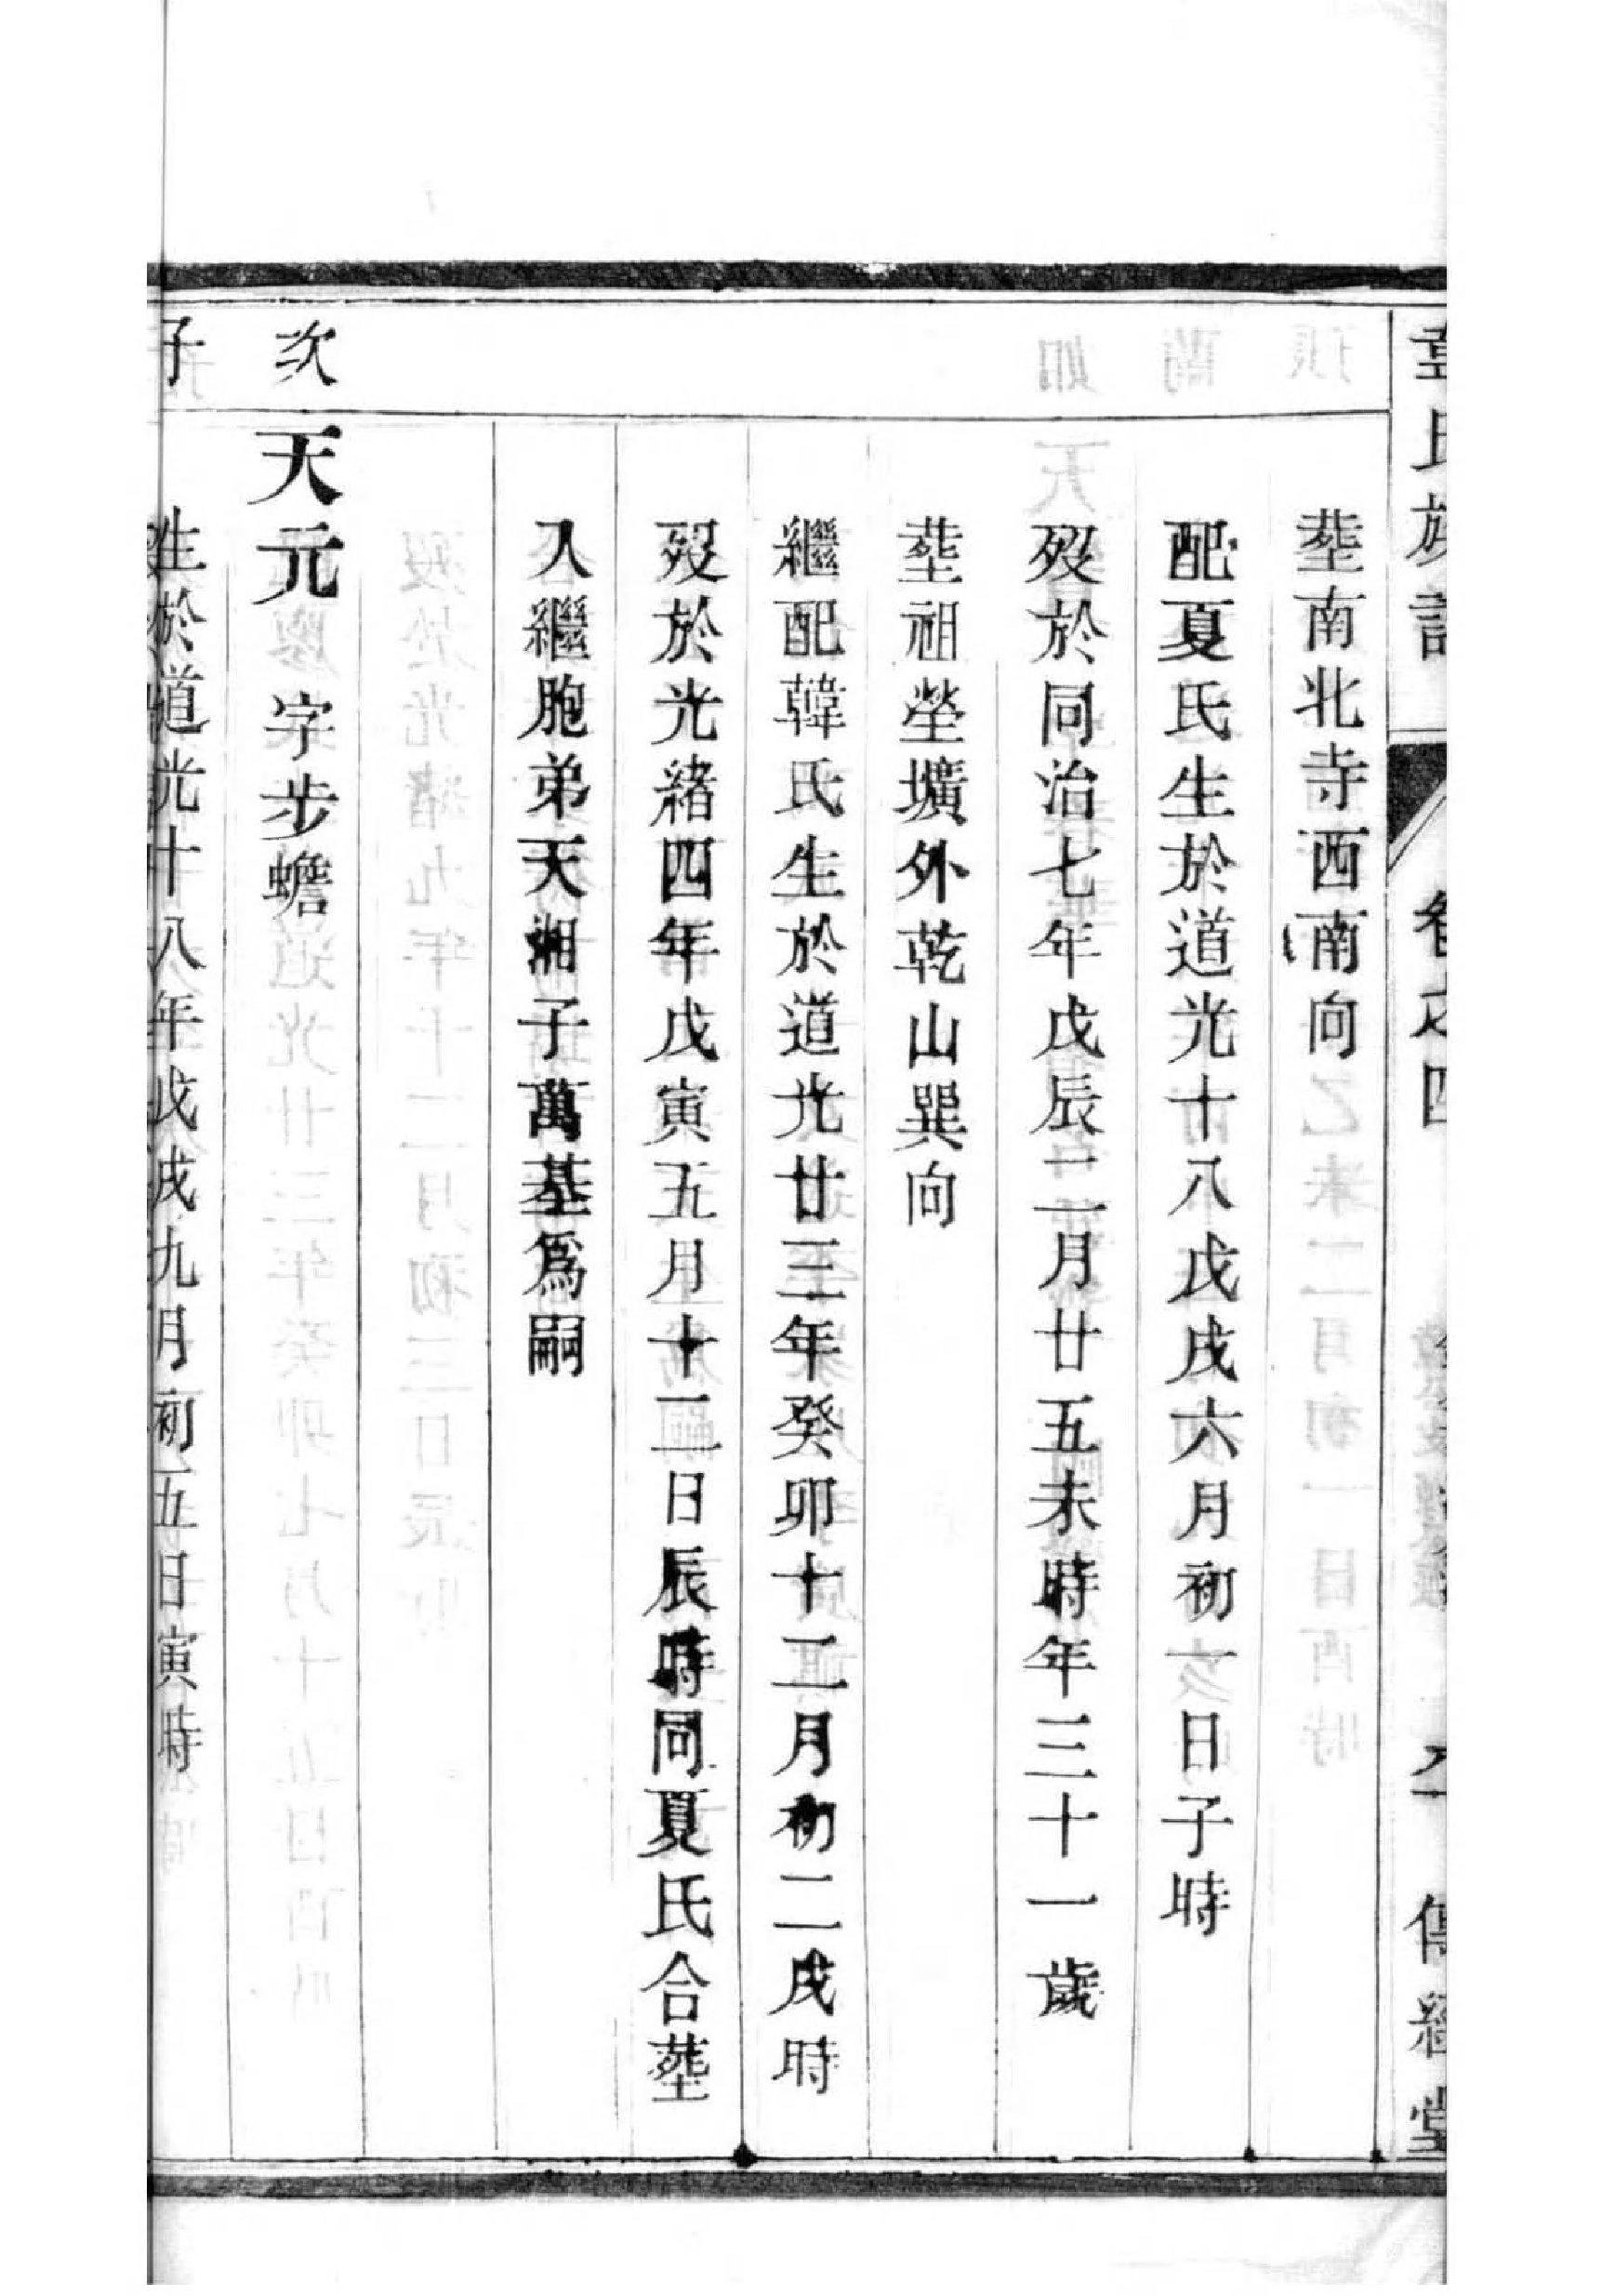 章氏族譜 卷之四 傳經堂
塟南北寺西南向
配夏氏生於道光十八戊戌六月初一日子時
歿於同治七年戊辰二月廿五未時年三十一歲
塟祖塋壙外乾山巽向
繼配韓氏生於道光廿三年癸卯十二月初二戌時
歿於光緒四年戊寅五月十二日辰時同夏氏合塟
入繼胞弟天湘子萬基爲嗣
次 天元 字步蟾
子 生於道光十八年戊戌九月初五日寅時